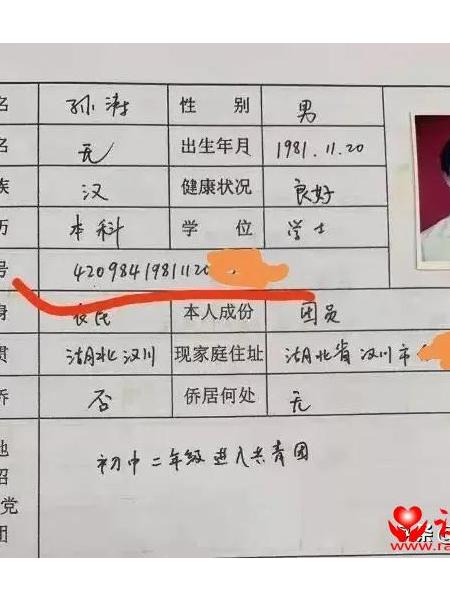 名 孙涛 性 别 男
名 无 出生年月 1981.11.20
族 汉 健康状况 良好
历 本科 学 位 学士
号 42098419811120
身 农民 本人成份 团员
贯 湖北汉川 现家庭住址 湖北省汉川市
侨 否 侨居何处 无
初中二年级进入共青团
地
招
党
团
www.ra